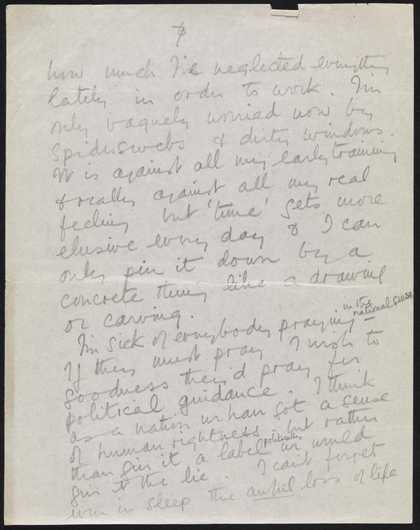 7
how much I've neglected everything
lately in order to work. I'm
only vaguely worried now by
spiderswebs & dirty windows.
It is against all my early training
& really against all my real
feeling but 'time' gets more
elusive every day & I can
only pin it down by a
concrete thing like a drawing
or carving.
I'm sick of everybody praying - in its national sense
If they must pray I wish to
goodness they'd pray for
political guidance. I think
as a nation we have got a sense
of human rightness, but rather
than give it a label we would
give it the lie. I can't forget
even in sleep the awful loss of life